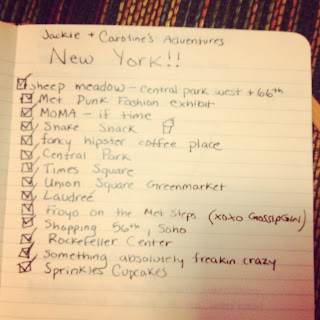 Jackie + Caroline's Adventures
New York!!
sheep meadow - Central park west + 66th
Met Punk Fashion exhibit
MOMA - if time
Shake Shack
fancy hipster coffee place
Central Park
Times Square
Union Square Greenmarket
Laudreé
Froyo on the Met Steps (xoxo GossipGirl)
Shopping 56th, Soho
Rockefeller Center
Something absolutely freakin crazy
Sprinkles Cupcakes